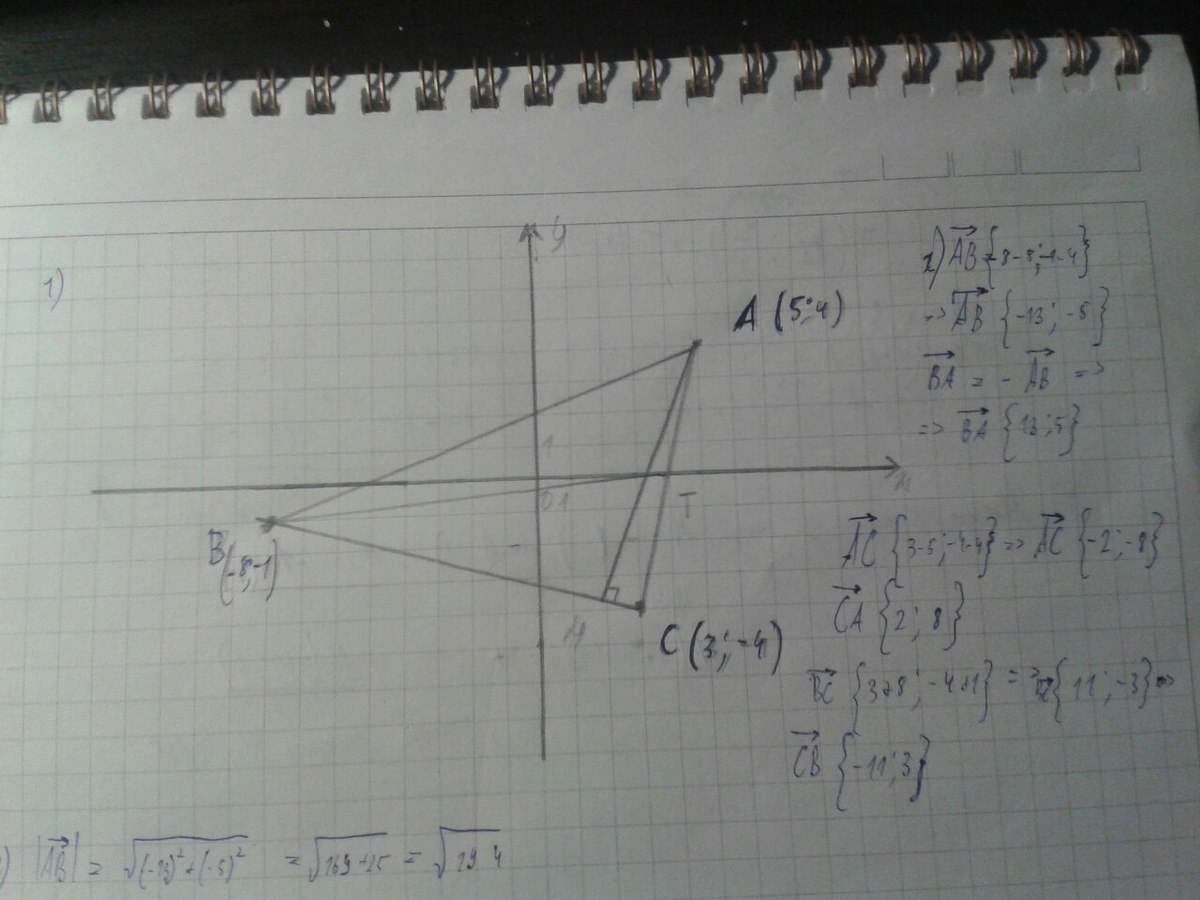 1)
y
A (5;4)
1
0 1
T
B
(-8;-1)
C (3;-4)
AB {-8-8;-1-4}
=> AB {-13;-5}
BA = - AB =>
=> BA {13;5}
AC {3-5;-4-4} => AC {-2;-8}
CA {2;8}
BC {3+8;-4+1} => BC {11;-3} =>
CB {-11;3}
) |AB| = √(-13)²+(-5)² = √169+25 = √194